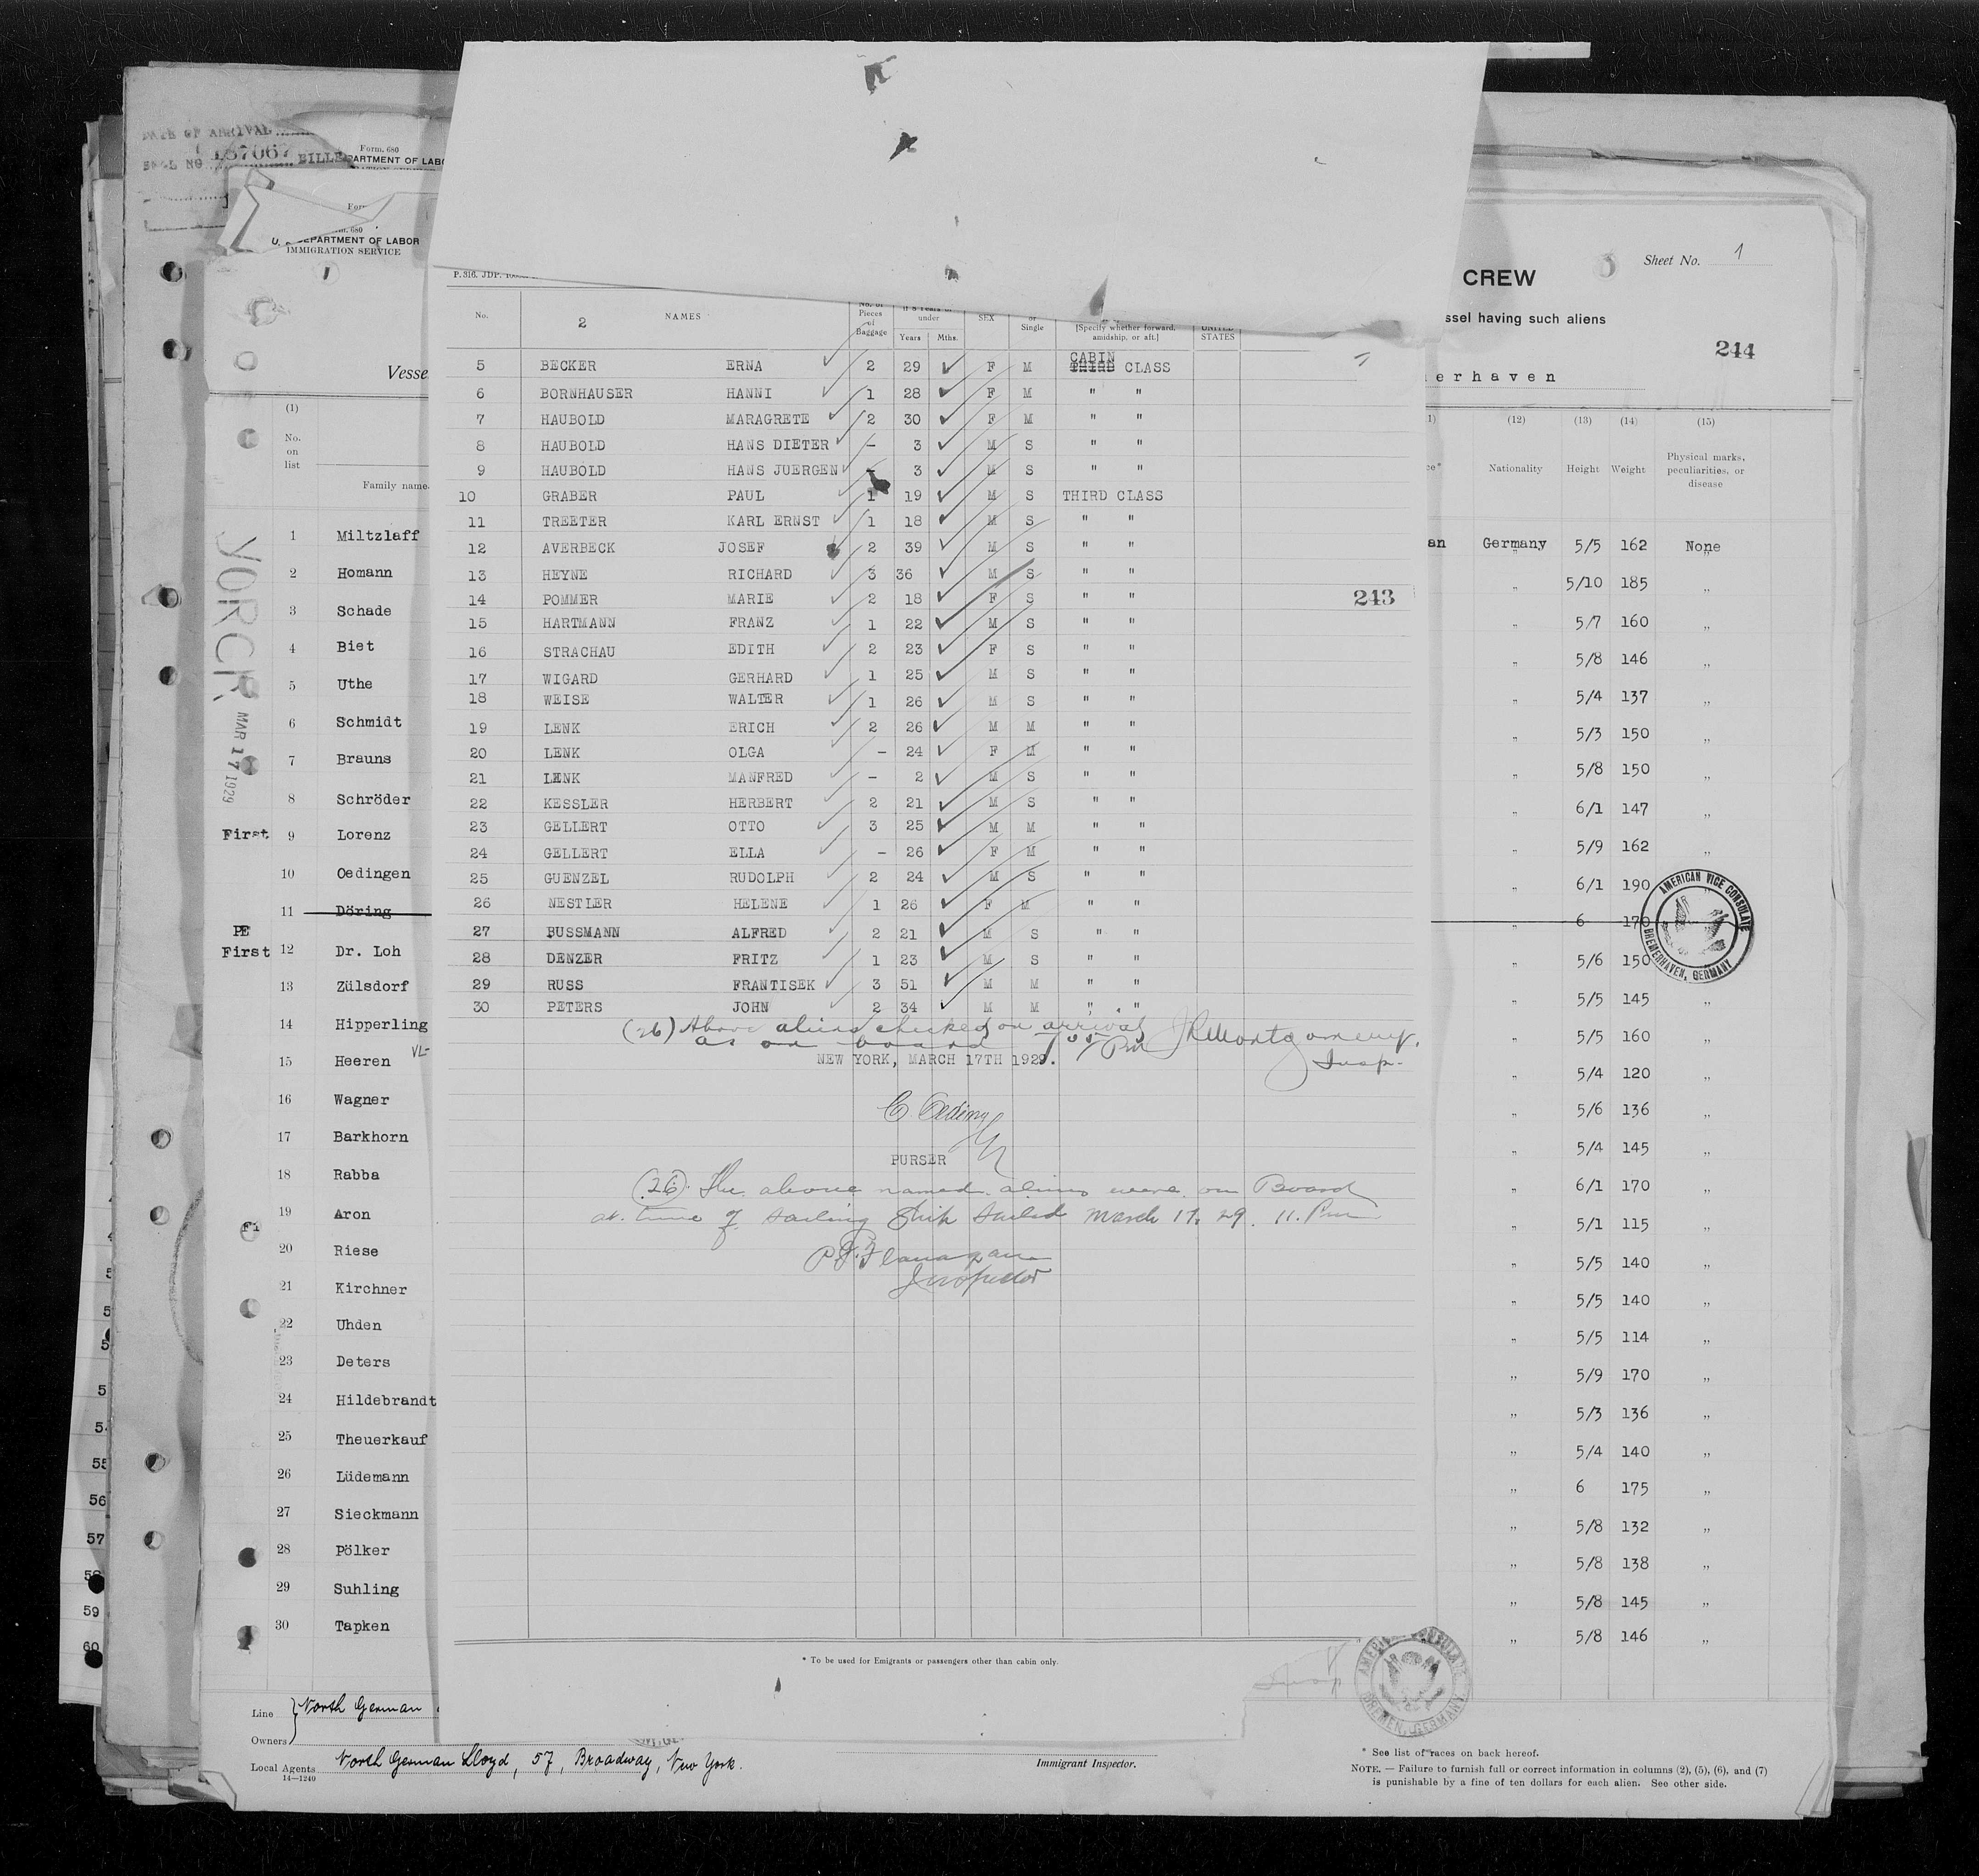 DATE OF ARRIVAL
187067 BILLE
Form. 680
DEPARTMENT OF LABO
680
U. S. DEPARTMENT OF LABOR
IMMIGRATION SERVICE
Vesse
(1)
No. on list
Family name.
YORCK MAR 17 1929
1 Miltzlaff
2 Homann
3 Schade
4 Biet
5 Uthe
6 Schmidt
7 Brauns
8 Schröder
First 9 Lorenz
10 Oedingen
11 Döring
PE
First 12 Dr. Loh
13 Zülsdorf
14 Hipperling
15 Heeren
16 Wagner
17 Barkhorn
18 Rabba
19 Aron
20 Riese
21 Kirchner
22 Uhden
23 Deters
24 Hildebrandt
25 Theuerkauf
26 Lüdemann
27 Sieckmann
28 Pölker
29 Suhling
30 Tapken
55
56
57
59
60
Line North German
Owners
Local Agents North German Lloyd, 57, Broadway, New York.
14—1240
Immigrant Inspector.
P. 316. JDP.
No. 2 NAMES Pieces of Baggage under Years Mths. SEX or Single [Specify whether forward, amidship, or aft.] UNITED STATES
CABIN
5 BECKER ERNA 2 29 F M THIRD CLASS
6 BORNHAUSER HANNI 1 28 F M " "
7 HAUBOLD MARAGRETE 2 30 F M " "
8 HAUBOLD HANS DIETER - 3 M S " "
9 HAUBOLD HANS JUERGEN - 3 M S " "
10 GRABER PAUL 1 19 M S THIRD CLASS
11 TREETER KARL ERNST 1 18 M S " "
12 AVERBECK JOSEF 2 39 M S " "
13 HEYNE RICHARD 3 36 M S " "
14 POMMER MARIE 2 18 F S " " 243
15 HARTMANN FRANZ 1 22 M S " "
16 STRACHAU EDITH 2 23 F S " "
17 WIGARD GERHARD 1 25 M S " "
18 WEISE WALTER 1 26 M S " "
19 LENK ERICH 2 26 M M " "
20 LENK OLGA - 24 F M " "
21 LENK MANFRED - 2 M S " "
22 KESSLER HERBERT 2 21 M S " "
23 GELLERT OTTO 3 25 M M " "
24 GELLERT ELLA - 26 F M " "
25 GUENZEL RUDOLPH 2 24 M S " "
26 NESTLER HELENE 1 26 F M " "
27 BUSSMANN ALFRED 2 21 M S " "
28 DENZER FRITZ 1 23 M S " "
29 RUSS FRANTISEK 3 51 M M " "
30 PETERS JOHN 2 34 M M " "
(26) Above aliens checked on arrival
as on board Montgomery.
NEW YORK, MARCH 17TH 1929. Insp.
PURSER
(26) The above named aliens were on Board
at time of sailing Ship sailed March 17. 29. 11. Pm
P. J. Flanagan
Inspector
* To be used for Emigrants or passengers other than cabin only.
Sheet No. 1
CREW
ssel having such aliens
244
erhaven
(12) (13) (14) (15)
Nationality Height Weight Physical marks, peculiarities, or disease
an Germany 5/5 162 None
" 5/10 185 "
" 5/7 160 "
" 5/8 146 "
" 5/4 137 "
" 5/3 150 "
" 5/8 150 "
" 6/1 147 "
" 5/9 162 "
" 6/1 190
" 6 170
" 5/6 150
" 5/5 145 "
" 5/5 160 "
" 5/4 120 "
" 5/6 136 "
" 5/4 145 "
" 6/1 170 "
" 5/1 115 "
" 5/5 140 "
" 5/5 140 "
" 5/5 114 "
" 5/9 170 "
" 5/3 136 "
" 5/4 140 "
" 6 175 "
" 5/8 132 "
" 5/8 138 "
" 5/8 145 "
" 5/8 146 "
AMERICAN VICE CONSULATE BREMERHAVEN, GERMANY
AMERICAN CONSULATE BREMEN, GERMANY
* See list of races on back hereof.
NOTE. — Failure to furnish full or correct information in columns (2), (5), (6), and (7)
is punishable by a fine of ten dollars for each alien. See other side.